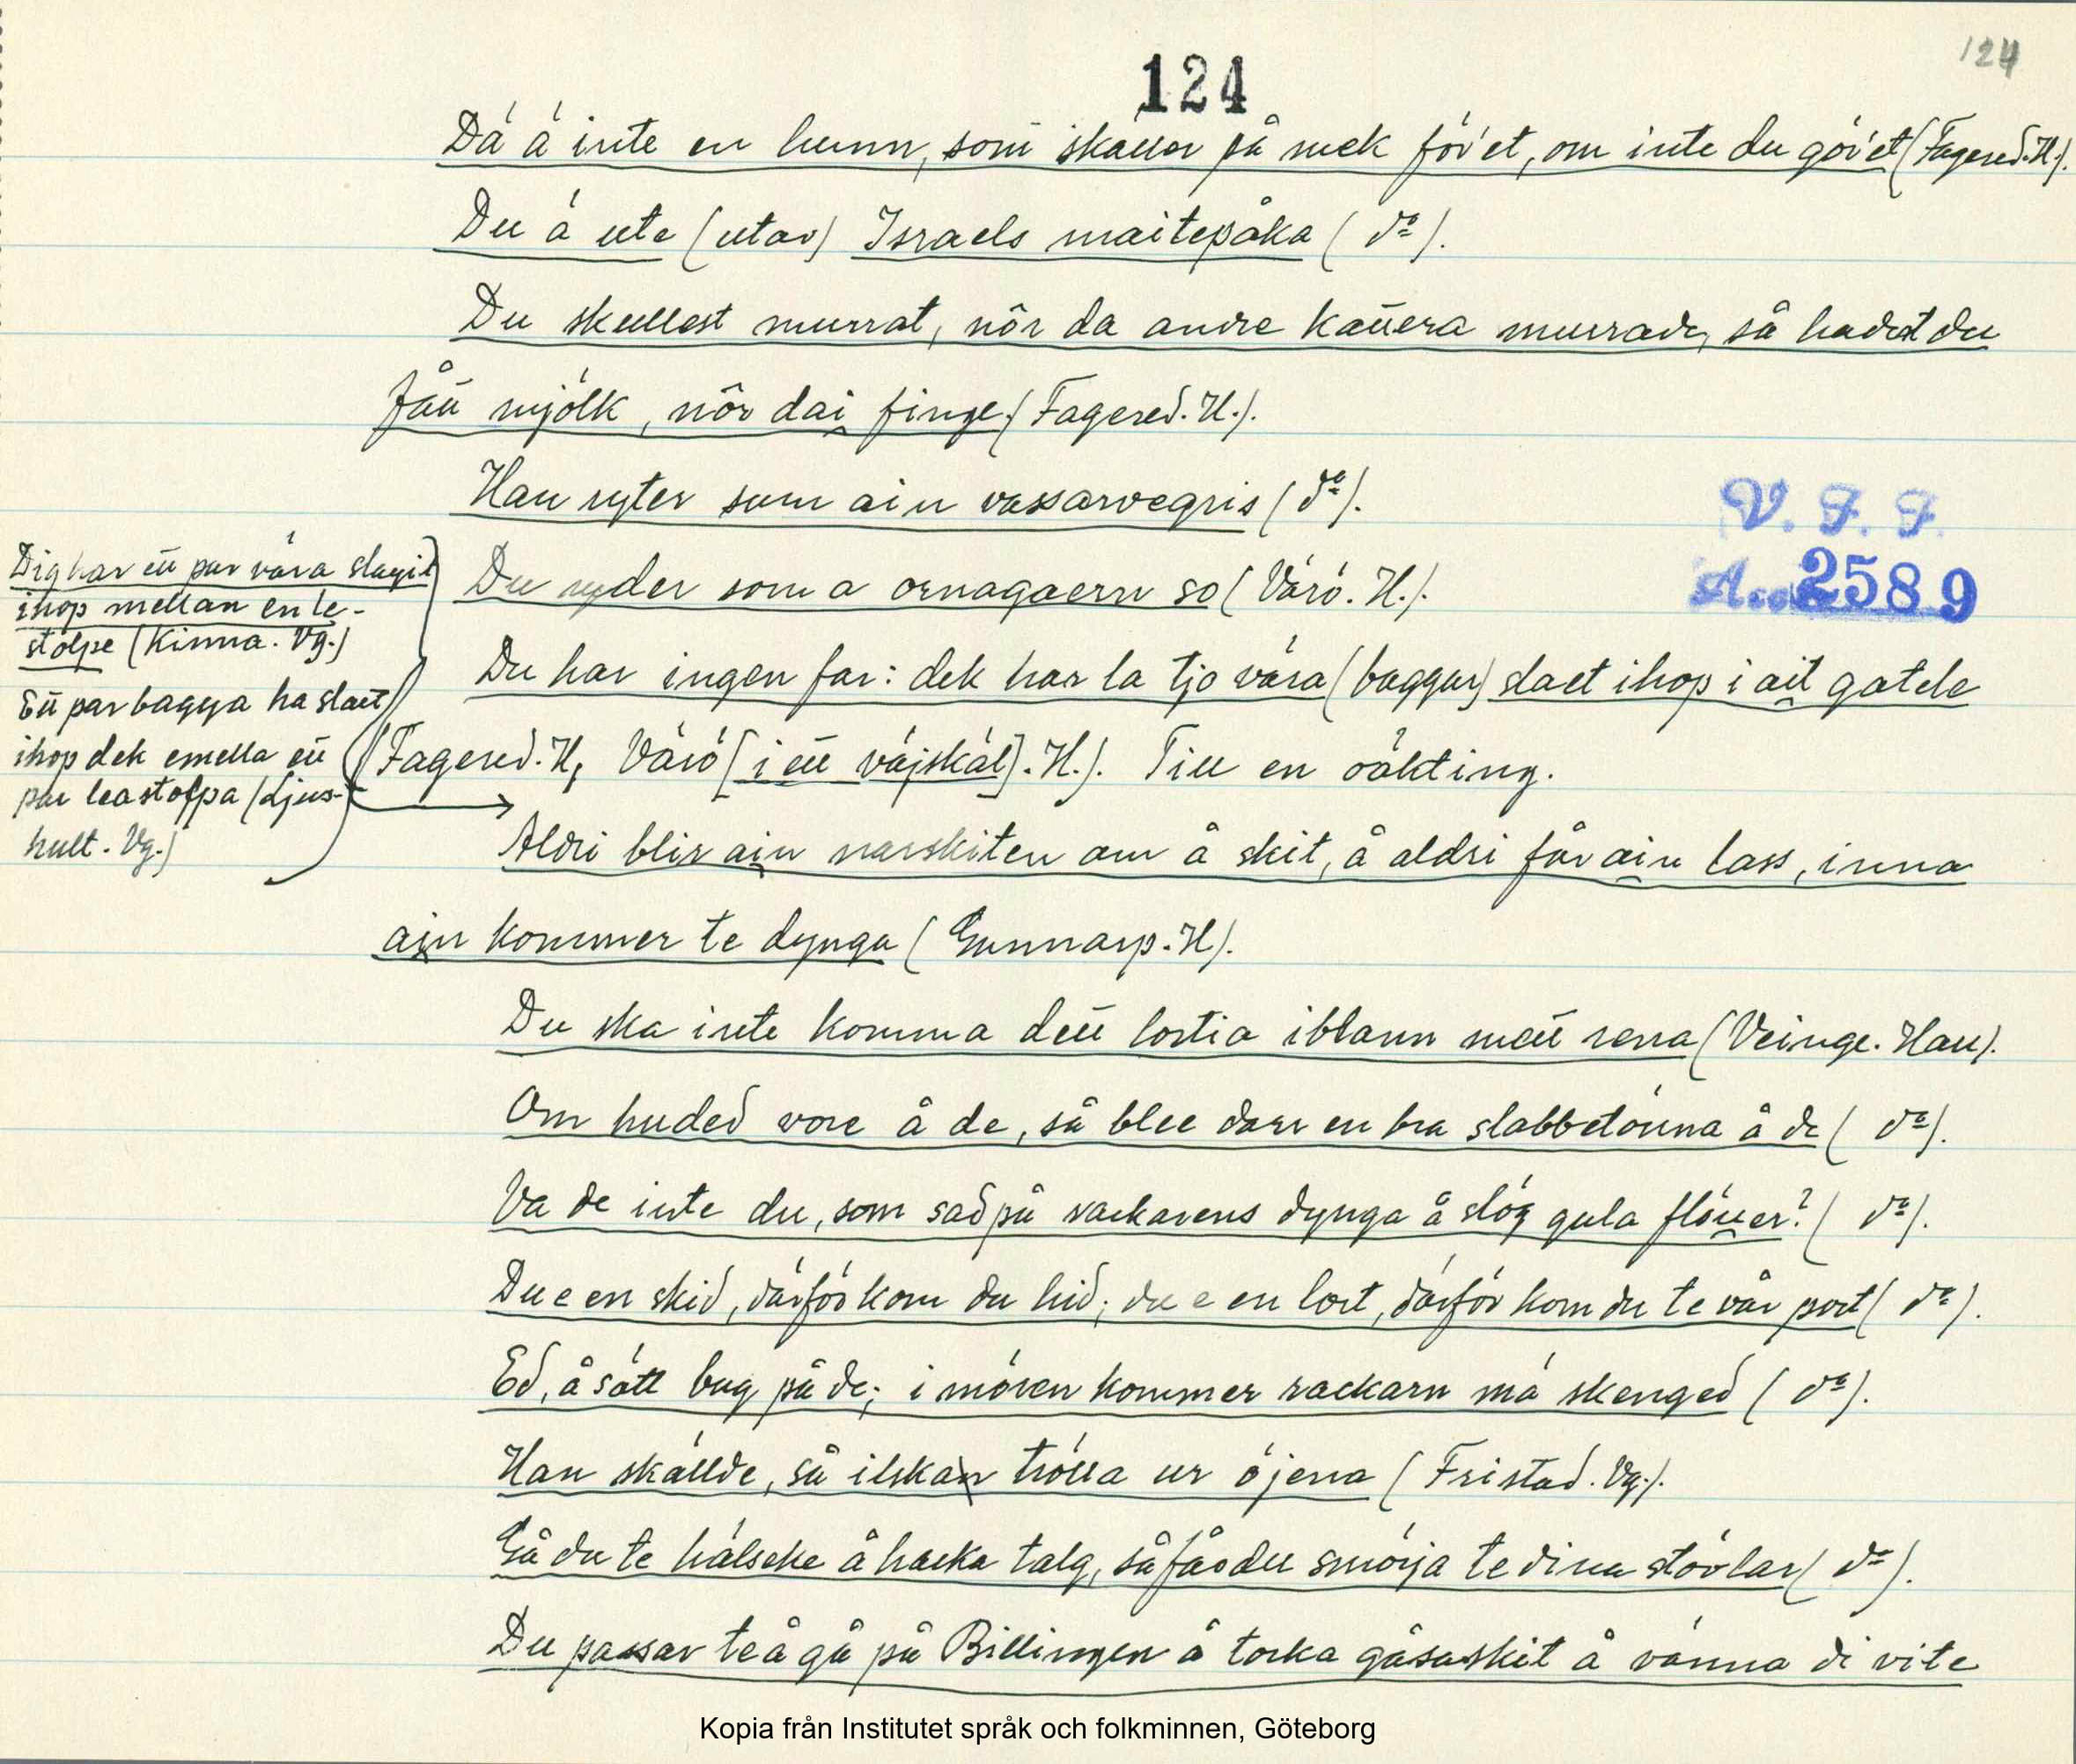 124
124
Dá á inte en hunn, som skäller på mek för'et, om inte du gör'et (Fagered. H.).
Du á ute (utav) Israels maitepåka (dº).
Du skullest murrat, nôr da andre kattera murrade, så hadest du
fått mjölk, nôr dai finge. (Fagered. H.).
Han ryter sum ain vassarvegris (dº).
V. F. F.
Acc. 2589
Du ryder som a ornagaern so (Värö. H.).
Du har ingen far: dek har la tjo vära (baggar) slaet ihop i ait gatele
(Fagered. H, Värö [i ett väjskäl]. H.). Till en oäkting.
Dig har ett par vära slagit
ihop mellan en le-
stolpe (Kinna. Vg.)
Ett par bagga ha slaet
ihop dek emella ett
par leastolpa (Ljus-
hult. Vg.)
Aldri blir ain narskiten om å skit, å aldri får ain lass, inna
ain kommer te dynga (Gunnarp. H).
Du ska inte komma dett lortia iblann mett rena (Veinge. Hall).
Om huded vore å de, så blee darr en bra slabbetönna å de (dº).
Va de inte du, som sad på rackarens dynga å slög gula flöuer? (dº).
Du e en skid, därför kom du hid; du e en lort, därför kom du te vår port (dº).
Ed, å sätt bug på de; i mören kommer rackarn mä skenged (dº).
Han skällde, så ilskan trölla ur öjena (Fristad. Vg.).
Gå du te hälseke å hacka talg, så får du smörja te dina stövlar (dº).
Du passar te å gå på Billingen å torka gåsaskit å vänna di vite
Kopia från Institutet språk och folkminnen, Göteborg